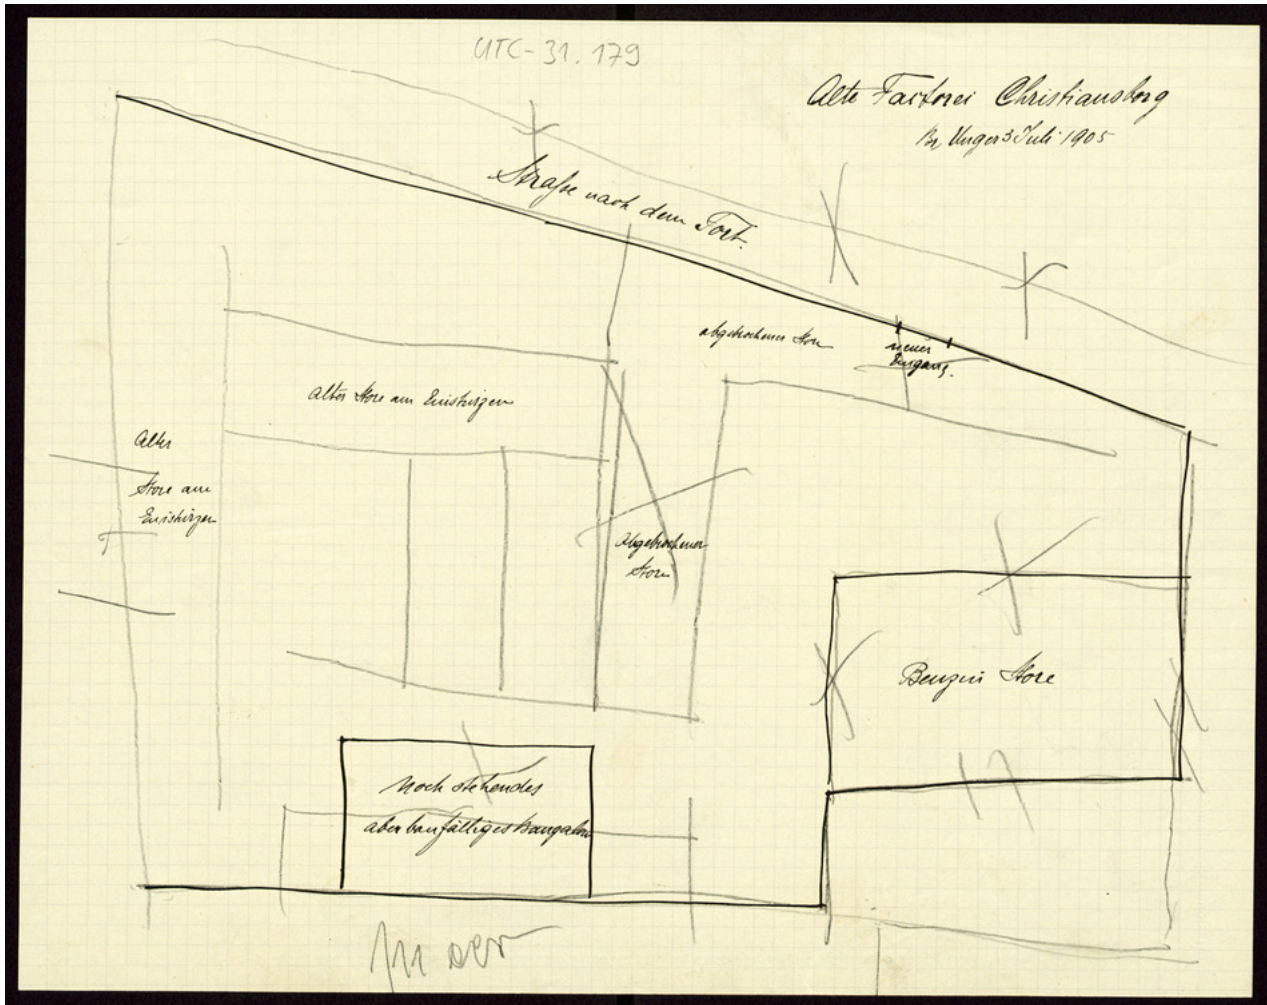 UTC-31.179
Alte Factorei Christiansborg
Br Unger 3 Juli 1905
Straße nach dem Fort.
abgebrochener Store
neuer
Eingang.
Alter Store am Einstürzen
Alter
Store am
Einstürzen
Abgebrochener
Store
Benzin Store
Noch stehendes
aber baufälliges Bungalow